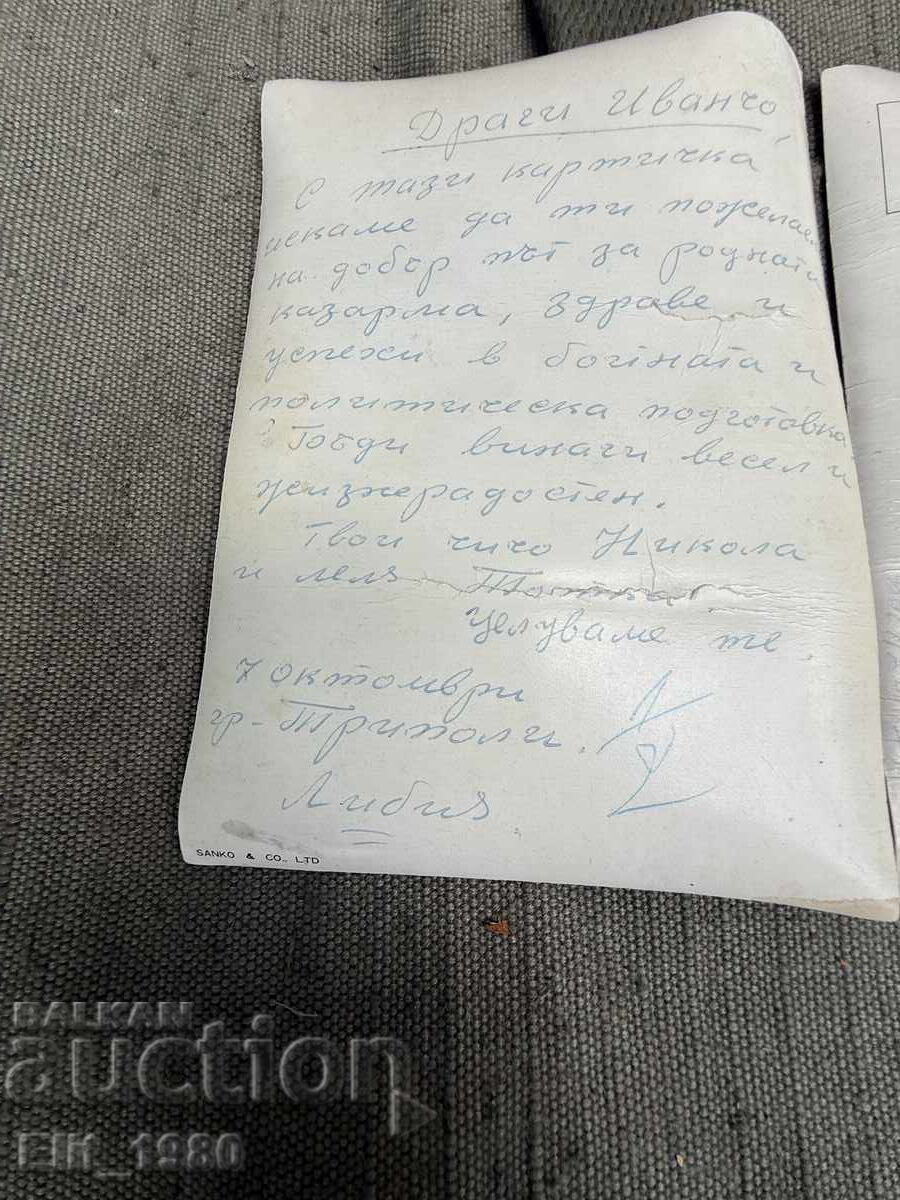 Драги Иванчо,
С тази картичка
искаме да ти пожелаем
на добър път за родната
казарма, здраве и
успехи в бойната и
политическа подготовка
Бъди винаги весел и
жизнерадостен.
Твои чичо Никола
и леля Тотка
Целуваме те.
7 октомври
гр. Триполи.
Либия
SANKO & CO., LTD
BALKAN
auction
EIK_1980